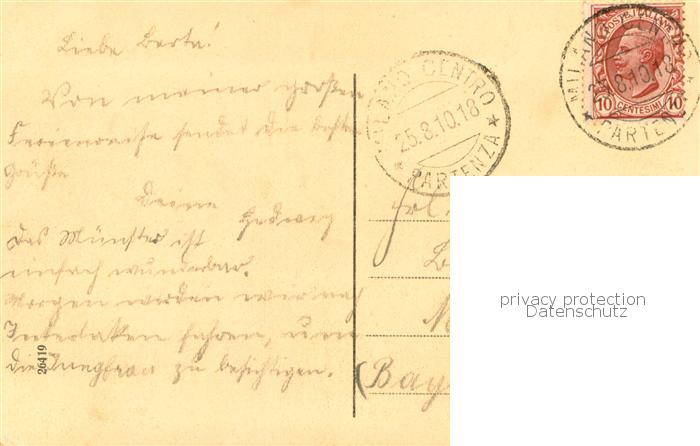 Liebe Berta!
Von meiner großen
Ferienreise sendet die besten
Grüße
Deine
Hedwig
Das Münster ist
einfach wunderbar.
Morgen werden wir nach
Interlaken fahren, um
die Jungfrau zu besichtigen.
26419
MILANO CENTRO
25.8.10.18
PARTENZA
POSTE ITALIANE
10 CENTESIMI 10
MILANO CENTRO
25.8.10.18
PARTENZA
Frl.
(Bay
privacy protection
Datenschutz